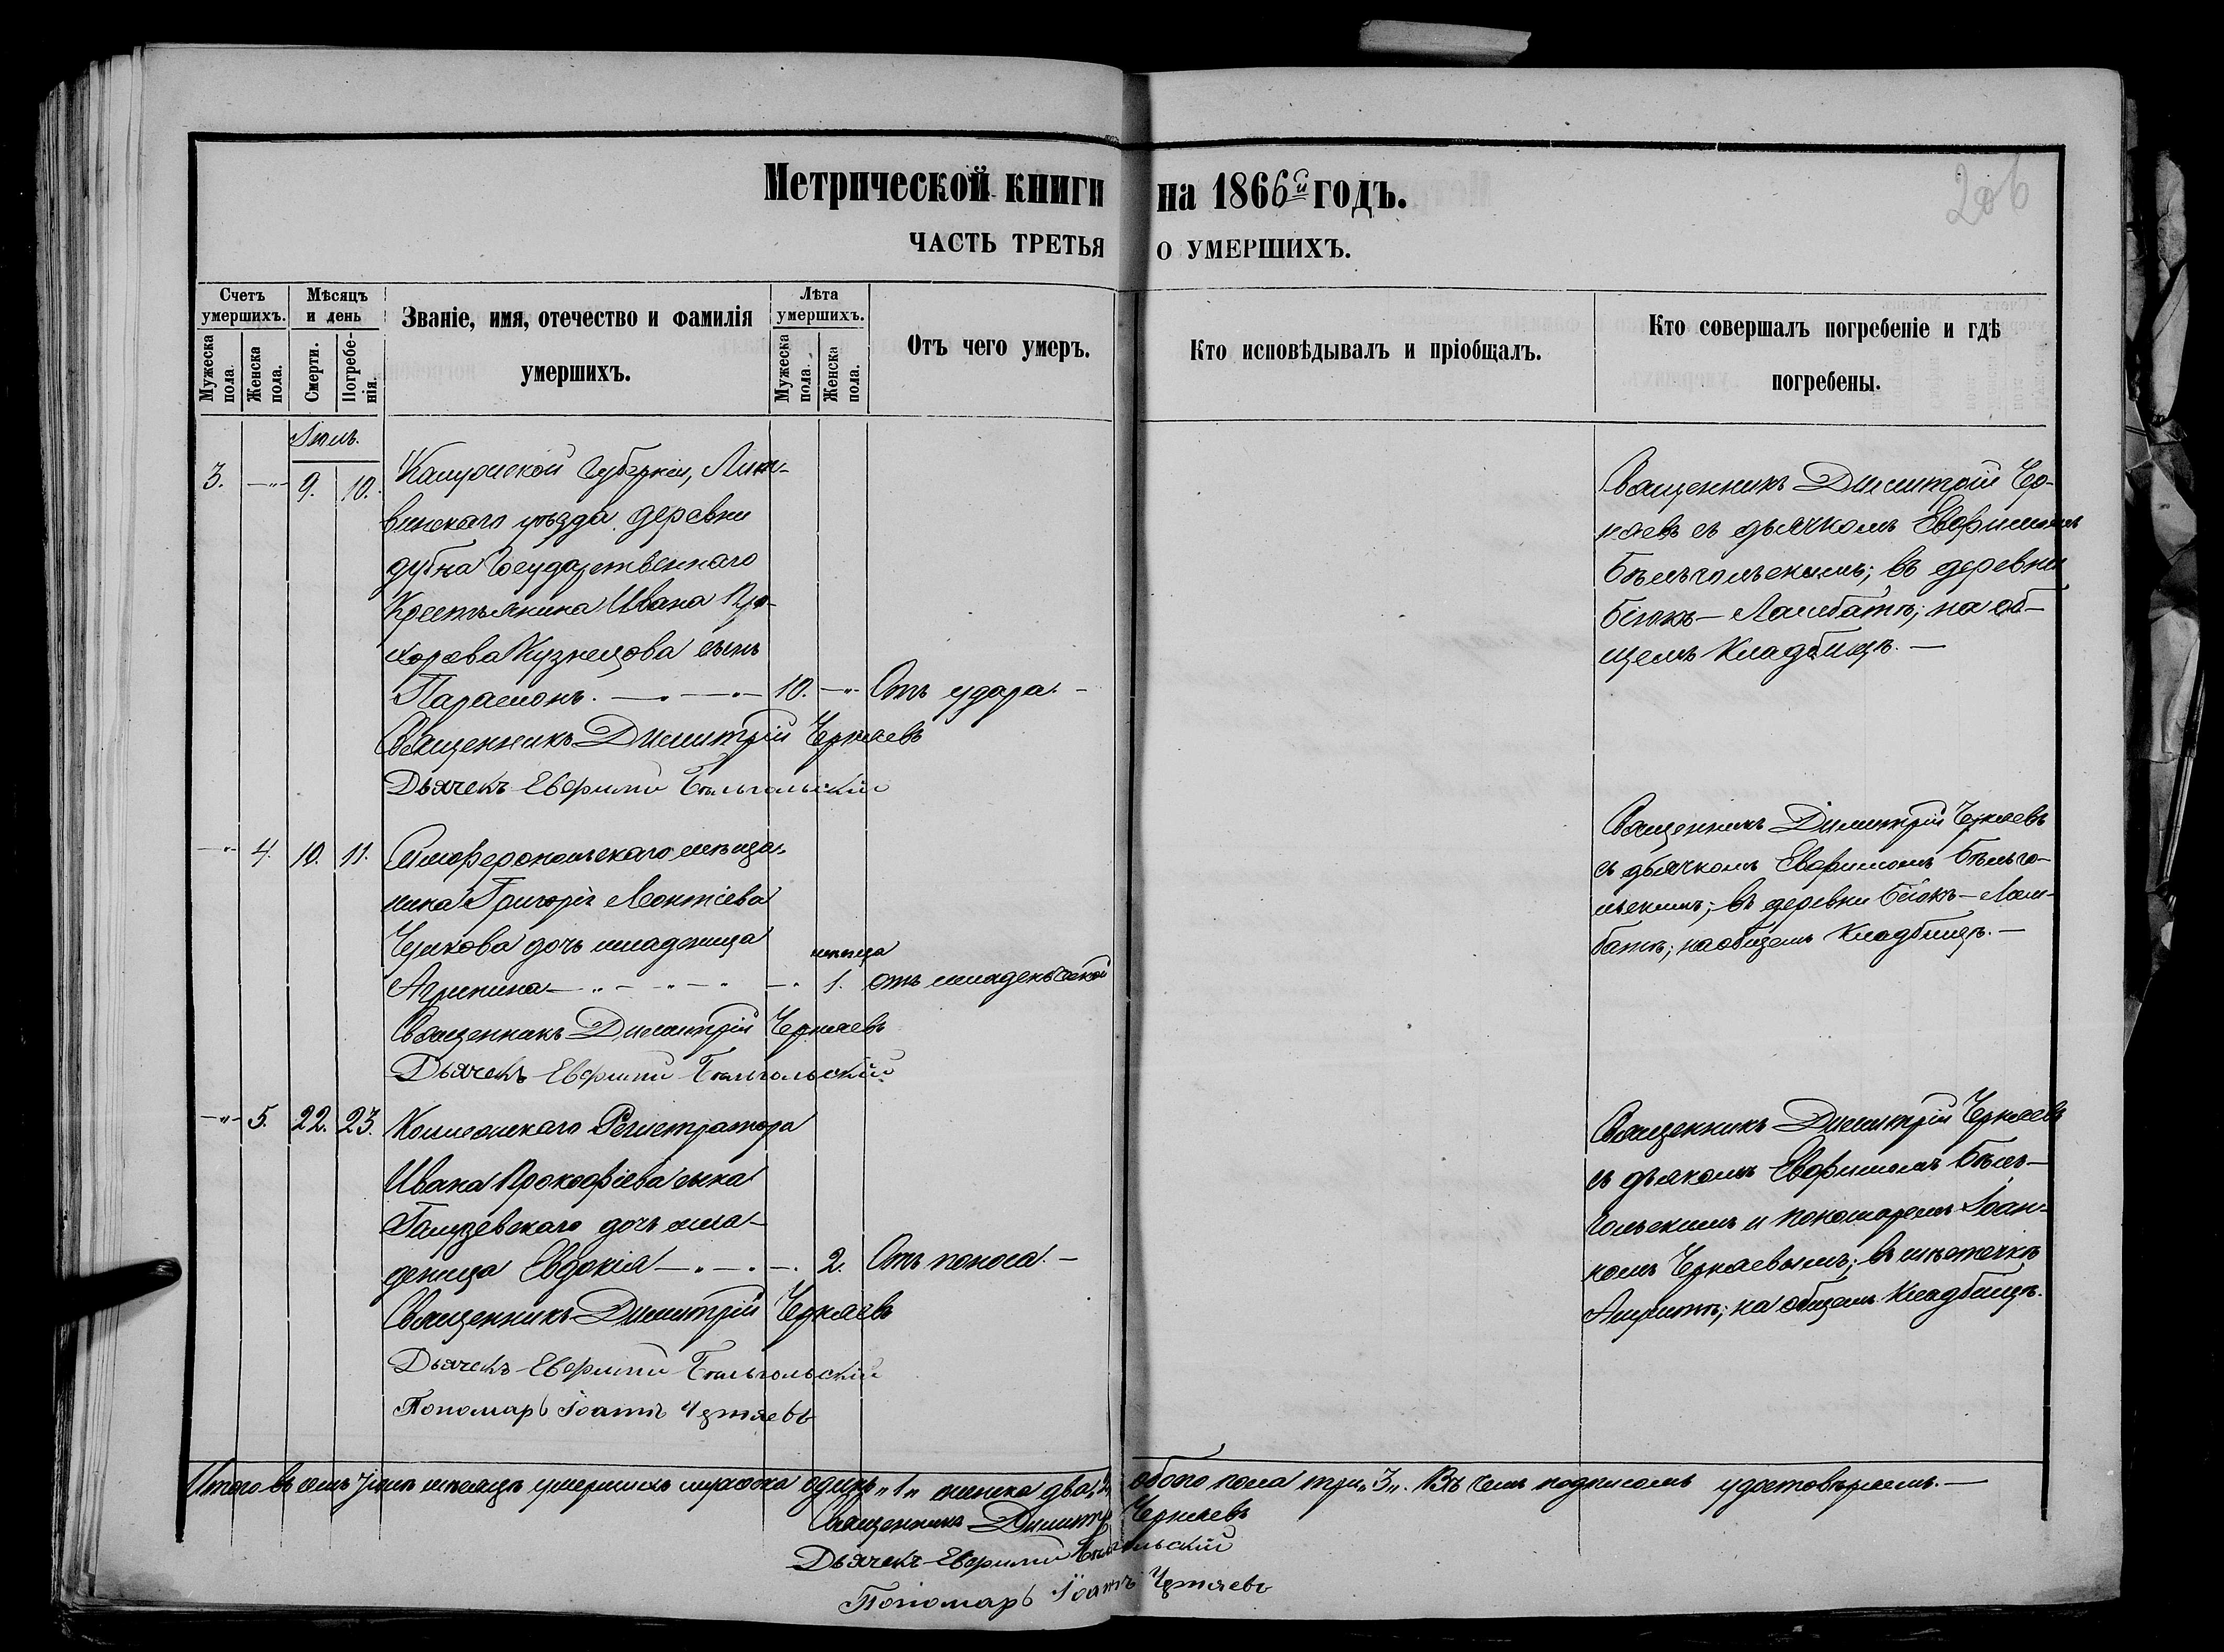 Метрической книги на 1866й годъ.
206
ЧАСТЬ ТРЕТЬЯ О УМЕРШИХЪ.
Счетъ умершихъ.
Мужеска пола.
Женска пола.
Мѣсяцъ и день
Смерти.
Погребенія.
Званіе, имя, отечество и фамилія
умершихъ.
Лѣта умершихъ.
Мужеска пола.
Женска пола.
Отъ чего умеръ.
Кто исповѣдывалъ и пріобщалъ.
Кто совершалъ погребеніе и гдѣ
погребены.
Іюль.
3. —"— 9. 10. Калужской Губерніи, Лих-
винскаго уѣзда деревни
Государственнаго
Крестьянина Ивана Про-
хорова Кузнецова сынъ
Парамонъ. 10. —"— Отъ удара. —
Священникъ Димитрій Черняевъ
Дьячекъ Евфимій Бѣльгольскій
Священникъ Димитрій Чер-
няевъ съ дьячкомъ Евфиміемъ
Бѣльгольскимъ; въ деревни
Біюкъ—Ламбатъ; на об-
щемъ Кладбищѣ. —
—"— 4. 10. 11. Симферопольскаго мѣща-
нина Григорія Леонтіева
дочь младеница
мѣсяца
Агрипина — " — " — " — 1. отъ младенческой
Священникъ Димитрій Черняевъ
Дьячекъ Евфимій Бѣльгольскій
Священникъ Димитрій Черняевъ
съ дьячкомъ Евфиміемъ Бѣльго-
льскимъ; въ деревни Біюкъ—Лам-
батъ; на общемъ Кладбищѣ. —
—"— 5. 22. 23. Коллежскаго Регистратора
Ивана Прокофіева сына
дочь мла-
деница Евдокія — " — " — 2. Отъ поноса. —
Священникъ Димитрій Черняевъ
Дьячекъ Евфимій Бѣльгольскій
Пономарь Іоаннъ Черняевъ
Священникъ Димитрій Черняевъ
съ дьякомъ Евфиміемъ Бѣль-
гольскимъ и пономаремъ Іоан-
номъ Черняевымъ; въ мѣстечкѣ
на общемъ Кладбищѣ.
Итого въ семъ Іюлѣ мѣсяцѣ умершихъ мужеска одинъ „1„ женска два „2„ обоего пола три „3„. Въ чемъ подписомъ удостовѣряемъ. —
Священникъ Димитрій Черняевъ
Дьячекъ Евфимій Бѣльгольскій
Пономарь Іоаннъ Черняевъ